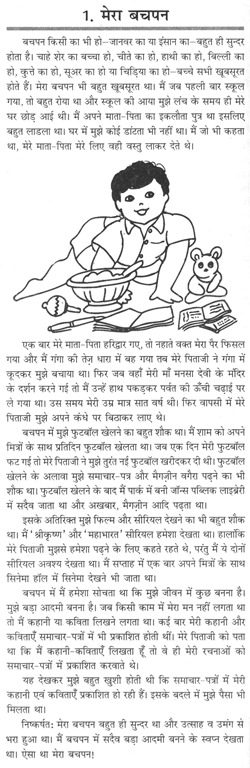 1. मेरा बचपन
बचपन किसी का भी हो–जानवर का या इंसान का–बहुत ही सुन्दर
होता है। चाहे शेर का बच्चा हो, चीते का हो, हाथी का हो, बिल्ली का
हो, कुत्ते का हो, सूअर का हो या चिड़िया का हो–बच्चे सभी खूबसूरत
होते हैं। मेरा बचपन भी बहुत खूबसूरत था। मैं जब पहली बार स्कूल
गया, तो बहुत रोया था और स्कूल की आया मुझे लंच के समय ही मेरे
घर छोड़ आई थी। मैं अपने माता-पिता का इकलौता पुत्र था इसलिए
बहुत लाडला था। घर में मुझे कोई डांटता भी नहीं था। मैं जो भी कहता
था, मेरे माता-पिता मेरे लिए वही वस्तु लाकर देते थे।
एक बार मेरे माता-पिता हरिद्वार गए, तो नहाते वक्त मेरा पैर फिसल
गया और मैं गंगा की तेज़ धारा में बह गया तब मेरे पिताजी ने गंगा में
कूदकर मुझे बचाया था। फिर जब वहाँ मेरी माँ मनसा देवी के मंदिर
के दर्शन करने गई तो मैं उन्हें हाथ पकड़कर पर्वत की ऊँची चढ़ाई पर
ले गया था। उस समय मेरी उम्र मात्र सात वर्ष की थी। वापसी में मेरे
पिताजी मुझे अपने कंधे पर बिठाकर लाए थे।
बचपन में मुझे फुटबॉल खेलने का बहुत शौक था। मैं शाम को अपने
मित्रों के साथ प्रतिदिन फुटबॉल खेलता था। जब एक दिन मेरी फुटबॉल
फट गई तो मेरे पिताजी ने मुझे तुरंत नई फुटबॉल खरीदकर दी थी। फुटबॉल
खेलने के अलावा मुझे समाचार-पत्र और मैगज़ीन वगैरा पढ़ने का भी
शौक था। फुटबॉल खेलने के बाद मैं पार्क में बनी जॉन्स पब्लिक लाइब्रेरी
में सदैव जाता था और अखबार, मैगज़ीन आदि पढ़ता था।
इसके अतिरिक्त मुझे फिल्म और सीरियल देखने का भी बहुत शौक
था। मैं 'श्रीकृष्ण' और 'महाभारत' सीरियल हमेशा देखता था। हालांकि
मेरे पिताजी मुझसे हमेशा पढ़ने के लिए कहते रहते थे, परंतु मैं ये दोनों
सीरियल अवश्य देखता था। मैं सप्ताह में एक बार अपने मित्रों के साथ
सिनेमा हॉल में सिनेमा देखने भी जाता था।
बचपन में मैं हमेशा सोचता था कि मुझे जीवन में कुछ बनना है।
मुझे बड़ा आदमी बनना है। जब किसी काम में मेरा मन नहीं लगता था
तो मैं कहानी या कविता लिखने लगता था। कई बार मेरी कहानी और
कविताएँ समाचार-पत्रों में भी प्रकाशित होती थीं। मेरे पिताजी को पता
था कि मैं कहानी-कविताएँ लिखता हूँ तो वे ही मेरी रचनाओं को
समाचार-पत्रों में प्रकाशित करवाते थे।
यह देखकर मुझे बहुत खुशी होती थी कि समाचार-पत्रों में मेरी
कहानी एवं कविताएँ प्रकाशित हो रही हैं। इसके बदले में मुझे पैसा भी
मिलता था।
निष्कर्षतः मेरा बचपन बहुत ही सुन्दर था और उत्साह व उमंग से
भरा हुआ था। मैं बचपन में सदैव बड़ा आदमी बनने के स्वप्न देखता
था। ऐसा था मेरा बचपन!